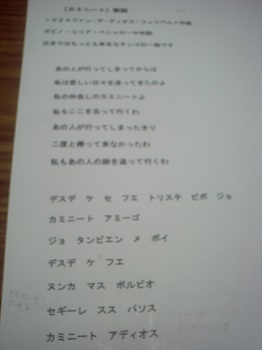 ［カミニート］歌詞
ガビノ・コリア・ペニャローサ作詞
日本ではもっとも有名なタンゴの一曲です
あの人が行ってしまってからは
私は悲しい日々を送ってきたのよ
私の仲良しのカミニートよ
私もここを去って行くわ
あの人が行ってしまったきり
二度と帰って来なかったわ
私もあの人の跡を追って行くわ
デスデ ケ セ フエ トリステ ビボ ジョ
カミニート アミーゴ
ジョ タンビエン メ ボイ
デスデ ケ フエ
ヌンカ マス ボルビオ
セギーレ スス パソス
カミニート アディオス